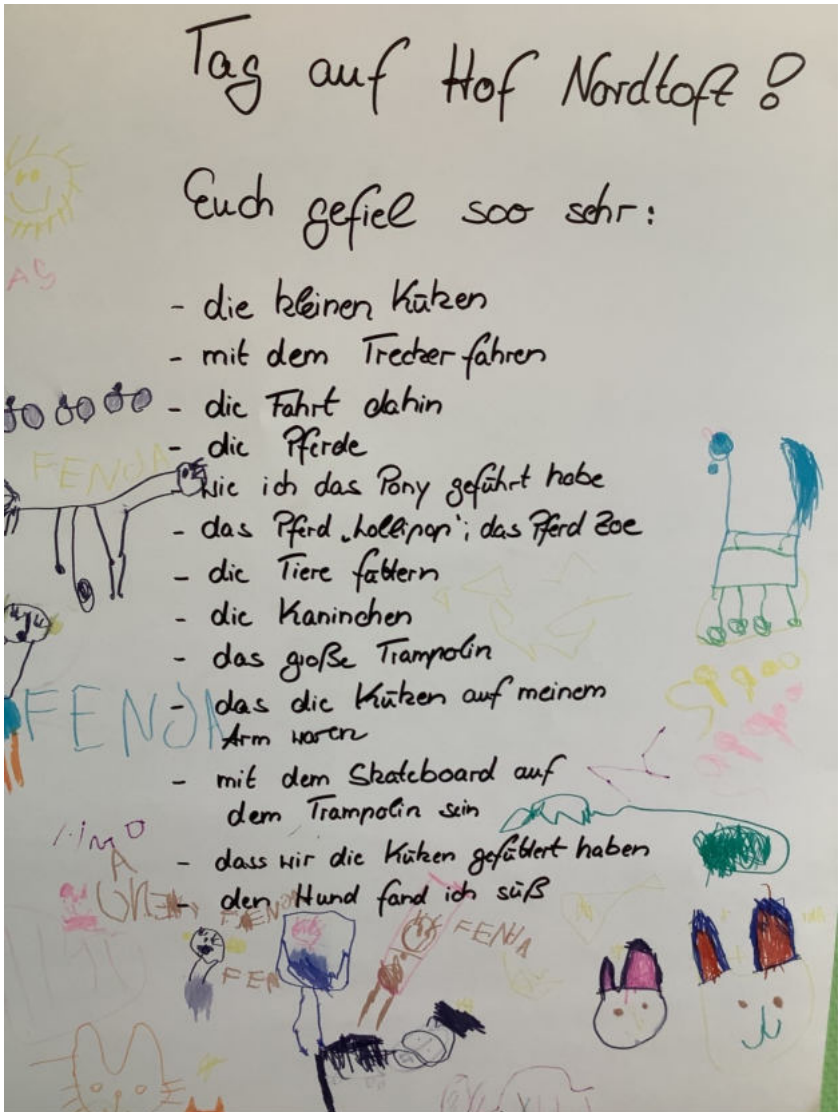 Tag auf Hof Nordtoft!
Euch gefiel soo sehr:
- die kleinen Küken
- mit dem Trecker fahren
- die Fahrt dahin
- die Pferde
FENJA
- wie ich das Pony geführt habe
- das Pferd „Lollipop“; das Pferd Zoe
- die Tiere füttern
- die Kaninchen
- das große Trampolin
- das die Küken auf meinem
FENJA
Arm waren
- mit dem Skateboard auf
dem Trampolin sein
- dass wir die Küken gefüttert haben
- den Hund fand ich süß
FENJA
FENJA
FEN